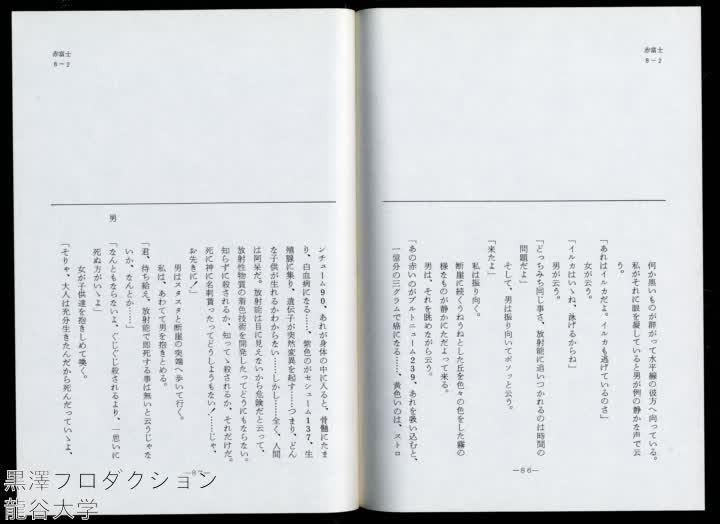 赤富士
8-2
何か黒いものが群がって水平線の彼方へ向っている。
私がそれに眼を凝していると男が例の静かな声で云
う。
「あれはイルカだよ。イルカも逃げているのさ」
女が云う。
「イルカはいゝね、泳げるからね」
男が云う。
「どっちみち同じ事さ、放射能に追いつかれるのは時間の
問題だよ」
そして、男は振り向いてボソッと云う。
「来たよ」
私は振り向く。
断崖に続くうねうねとした丘を色々の色をした霧の
様なものが静かにたゞよって来る。
男は、それを眺めながら云う。
「あの赤いのがプルトニューム239、あれを吸い込むと、
一億分の三グラムで癌になる……、黄色いのは、ストロ
—86—
赤富士
8-2
ンチューム90、あれが身体の中に入ると、骨髄にたま
り、白血病になる……、紫色のがセシューム137、生
殖腺に集り、遺伝子が突然変異を起す……つまり、どん
な子供が生れるかわからない……しかし……全く、人間
は阿呆だ。放射能は目に見えないから危険だと云って、
放射性物質の着色技術を開発したってどうにもならない。
知らずに殺されるか、知ってゝ殺されるか、それだけだ。
死に神に名刺貰ったってどうしようもない！……じゃ、
お先きに！」
男はスタスタと断崖の突端へ歩いて行く。
私は、あわてて男を抱きとめる。
「君、待ち給え、放射能で即死する事は無いと云うじゃな
いか、なんとか……」
男
「なんともならないよ、ぐじぐじ殺されるより、一思いに
死ぬ方がいゝよ」
女が子供達を抱きしめて喚く。
「そりゃ、大人は充分生きたんだから死んだっていゝよ、
—87—
黒澤プロダクション
龍谷大学